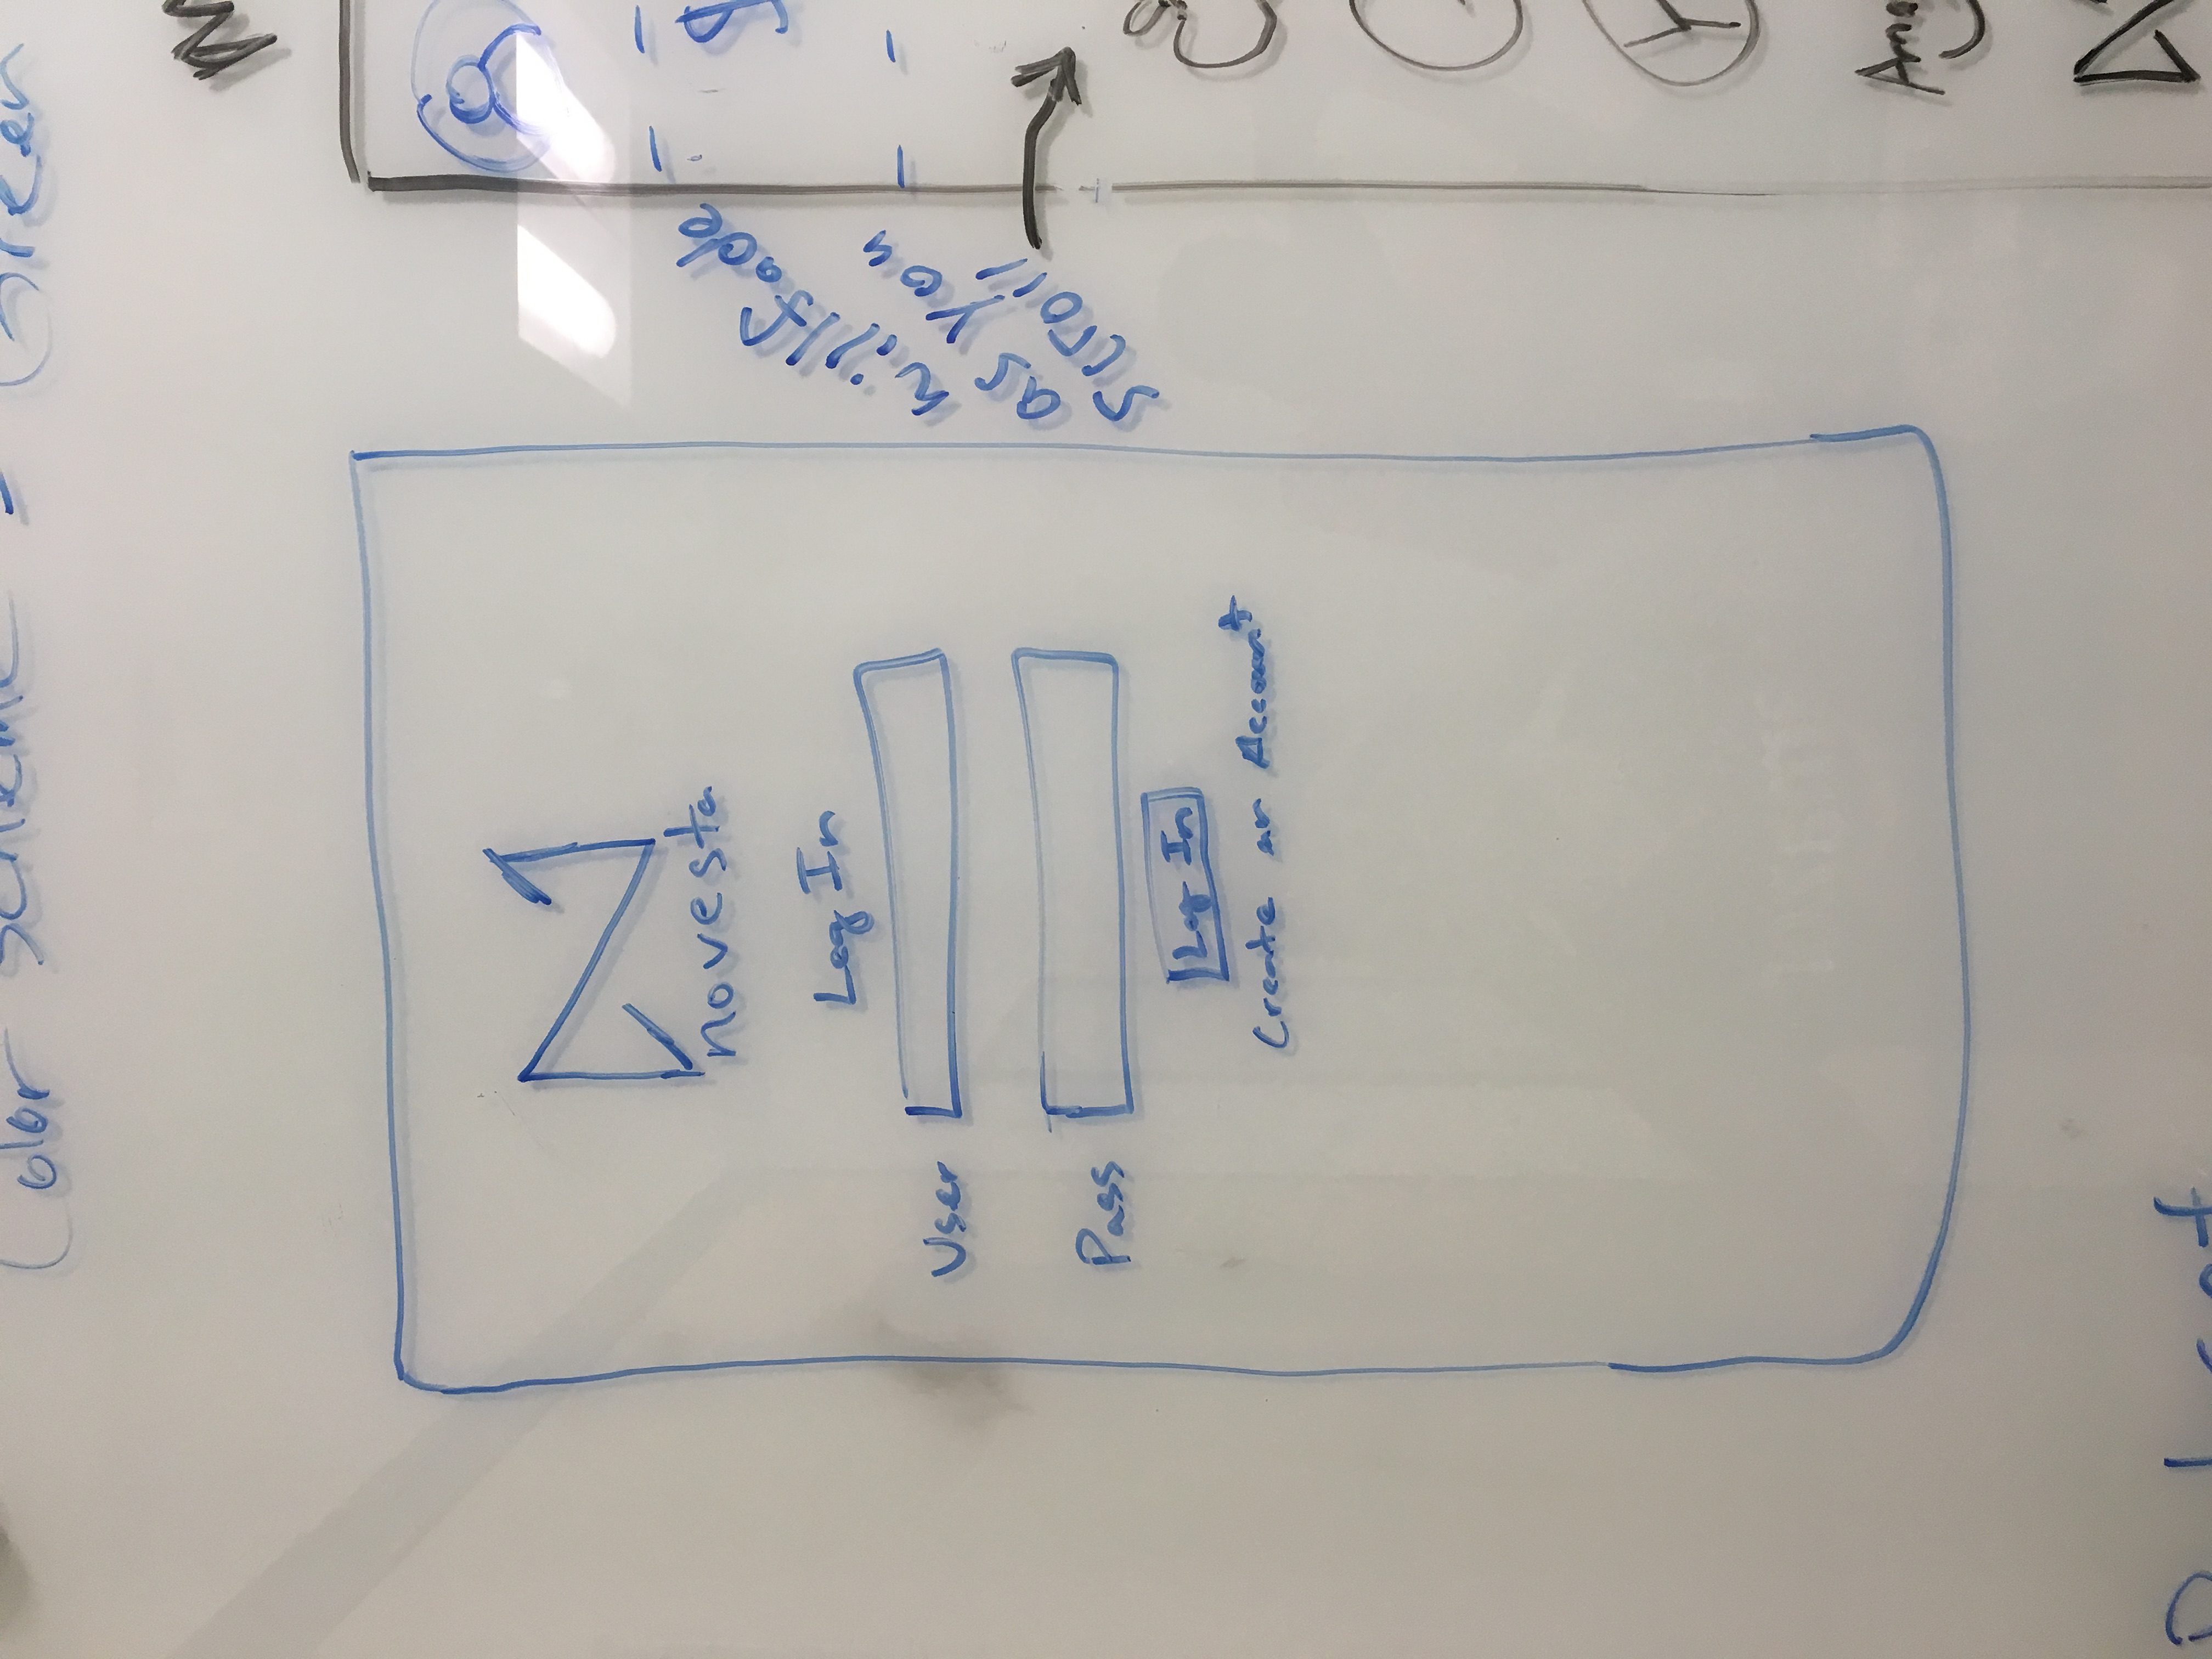 Color Scheme - Green
novesta
Log In
User
Pass
Log In
Create an Account
will fade
as you
scroll
$
Y